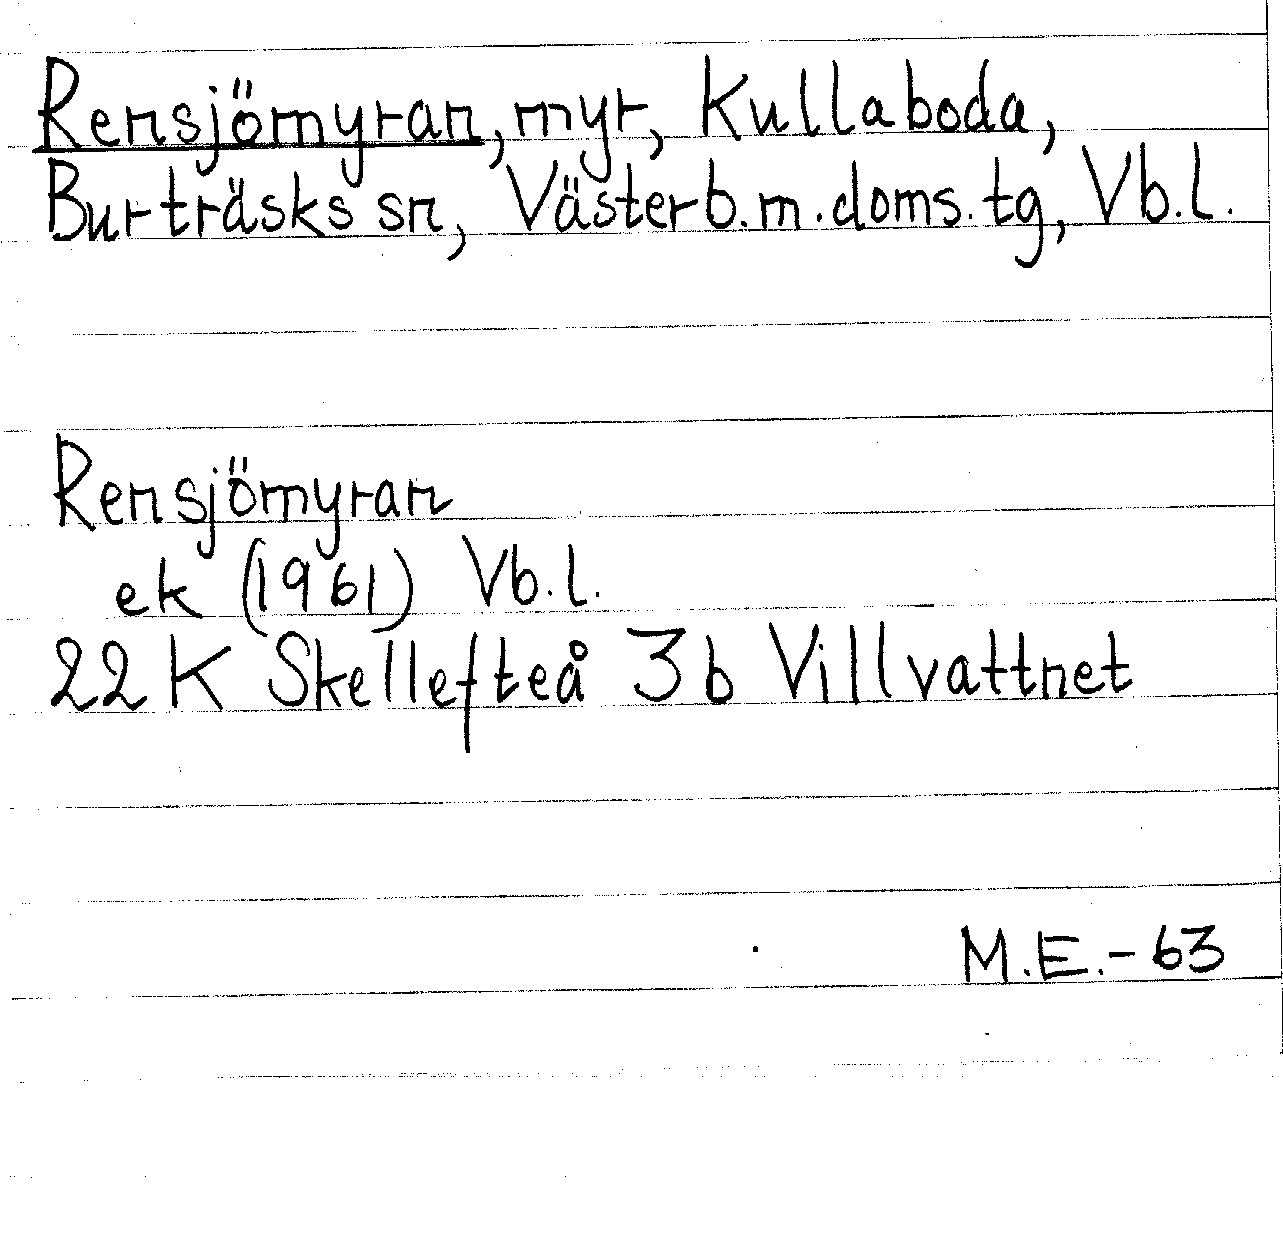 Rensjömyran, myr, Kullaboda,
Burträsks sn, Västerb.m.doms.tg, Vb.l.
Rensjömyran
ek (1961) Vb.l.
22 K Skellefteå 3b Villvattnet
M.E.-63